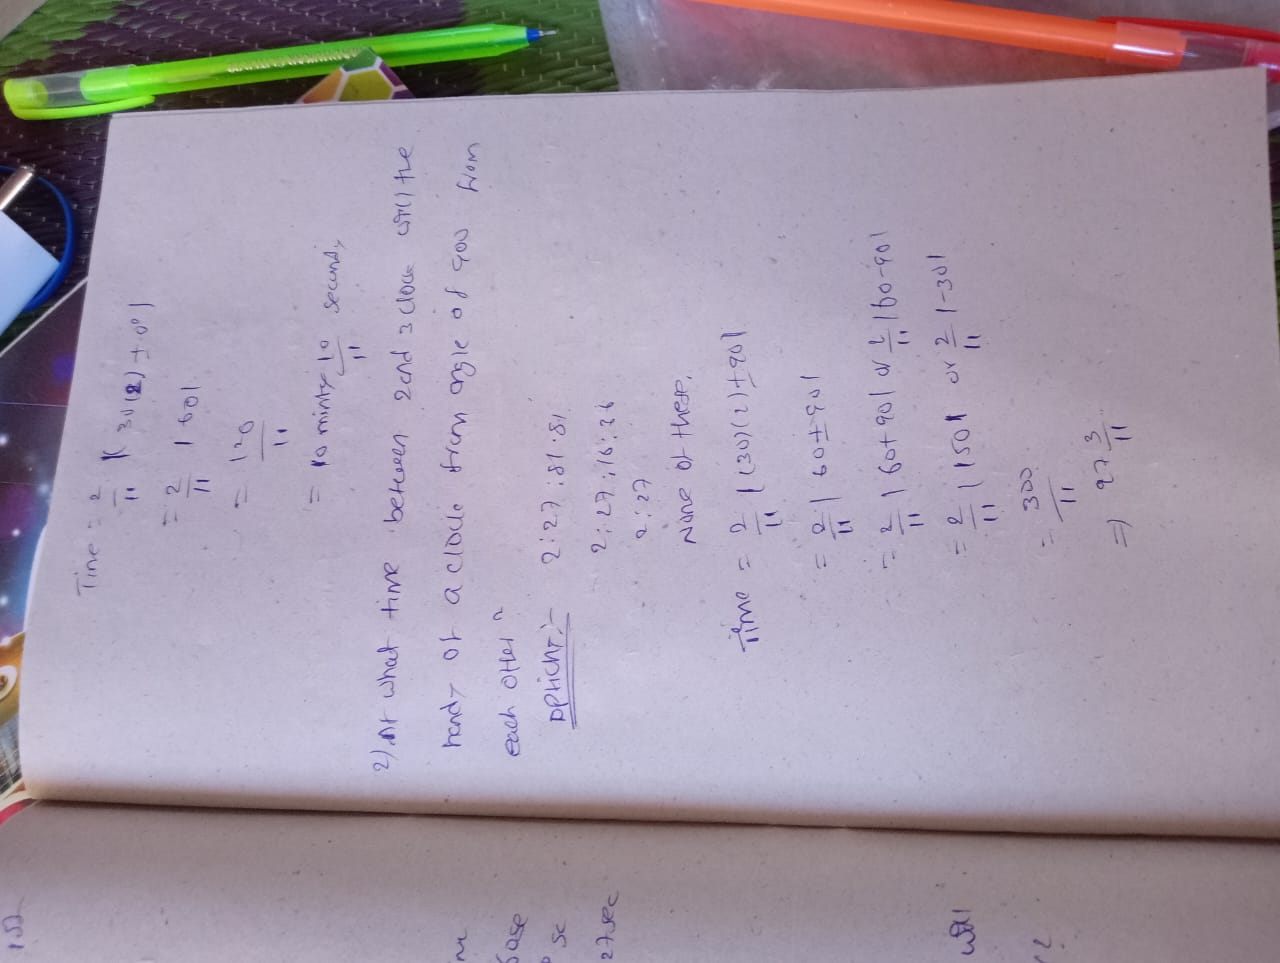 Time = 2/11 | 30(2) ± 0° |
= 2/11 | 60 |
= 120/11
= 10 mints 10/11 seconds
2) At what time between 2 and 3 clock will the
hands of a clock from angle of 90° from
each other?
2:27:81.81
2:27:16:36
2:27
None of these.
Time = 2/11 | (30)(2) ± 90 |
= 2/11 | 60 ± 90 |
= 2/11 | 60+90 | or 2/11 | 60-90 |
= 2/11 | 150 | or 2/11 | -30 |
= 300/11
⇒ 27 3/11
27 sec